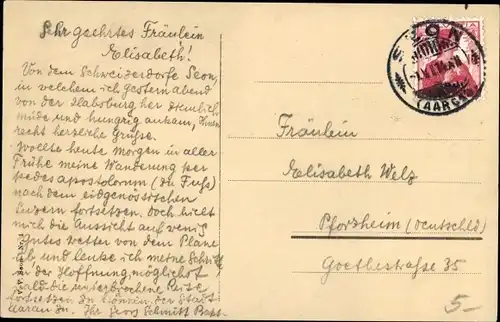 Sehr geehrtes Fräulein
Elisabeth!
Von dem Schweizerdorfe Seon,
in welchem ich gestern abend
von der Habsburg her ziemlich
müde und hungrig ankam, Ihnen
recht herzliche Grüße.
Wollte heute morgen in aller
Frühe meine Wanderung per
pedes apostolorum (zu Fuß)
nach dem eidgenössischen
Luzern fortsetzen, doch hielt
mich die Aussicht auf wenig
gutes Wetter von dem Plane
ab und lenke ich meine Schritte
in der Hoffnung, möglichst
bald die unterbrochene Reise
fortsetzen zu können, der Stadt
Aarau zu. Ihr Georg Schmitt
SEON
(AARGAU)
Fräulein
Elisabeth Welz
Pforzheim (Deutschld)
Goethestraße 35
5-